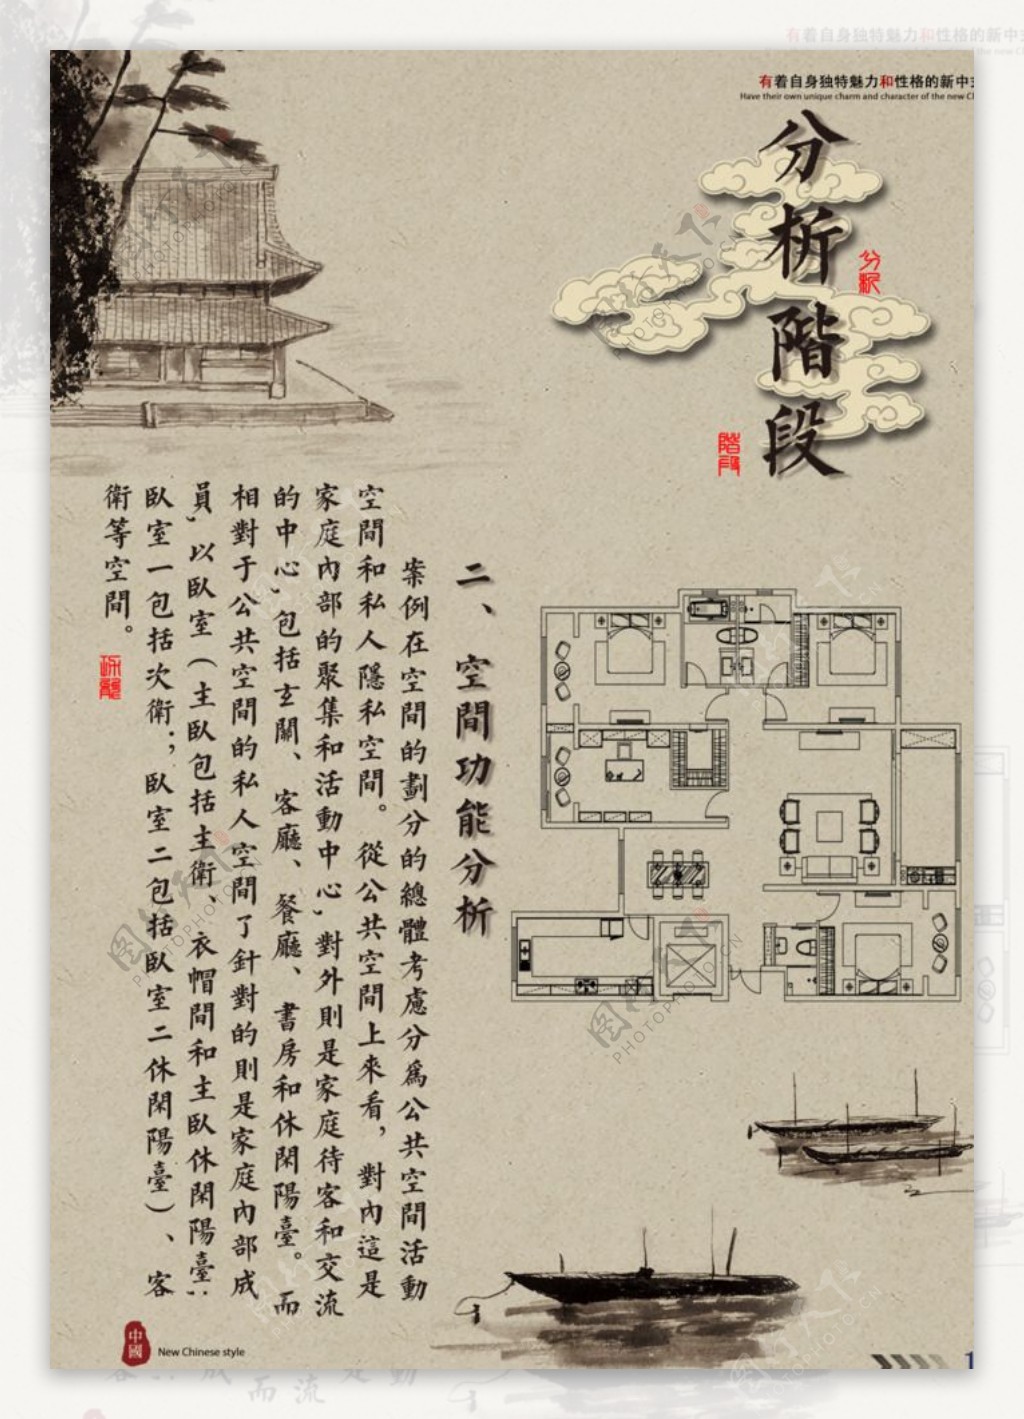 有着自身独特魅力和性格的新中式
Have their own unique charm and character of the new Ch
分析階段
分析
階段
二、空間功能分析
案例在空間的劃分的總體考慮分爲公共空間活動
空間和私人隱私空間。從公共空間上來看，對內這是
家庭內部的聚集和活動中心，對外則是家庭待客和交流
的中心，包括玄關、客廳、餐廳、書房和休閑陽臺。而
相對于公共空間的私人空間了針對的則是家庭內部成
員，以臥室（主臥包括主衛、衣帽間和主臥休閑陽臺；
臥室一包括次衛；臥室二包括臥室二休閑陽臺）、客
衛等空間。
中國
New Chinese style
1